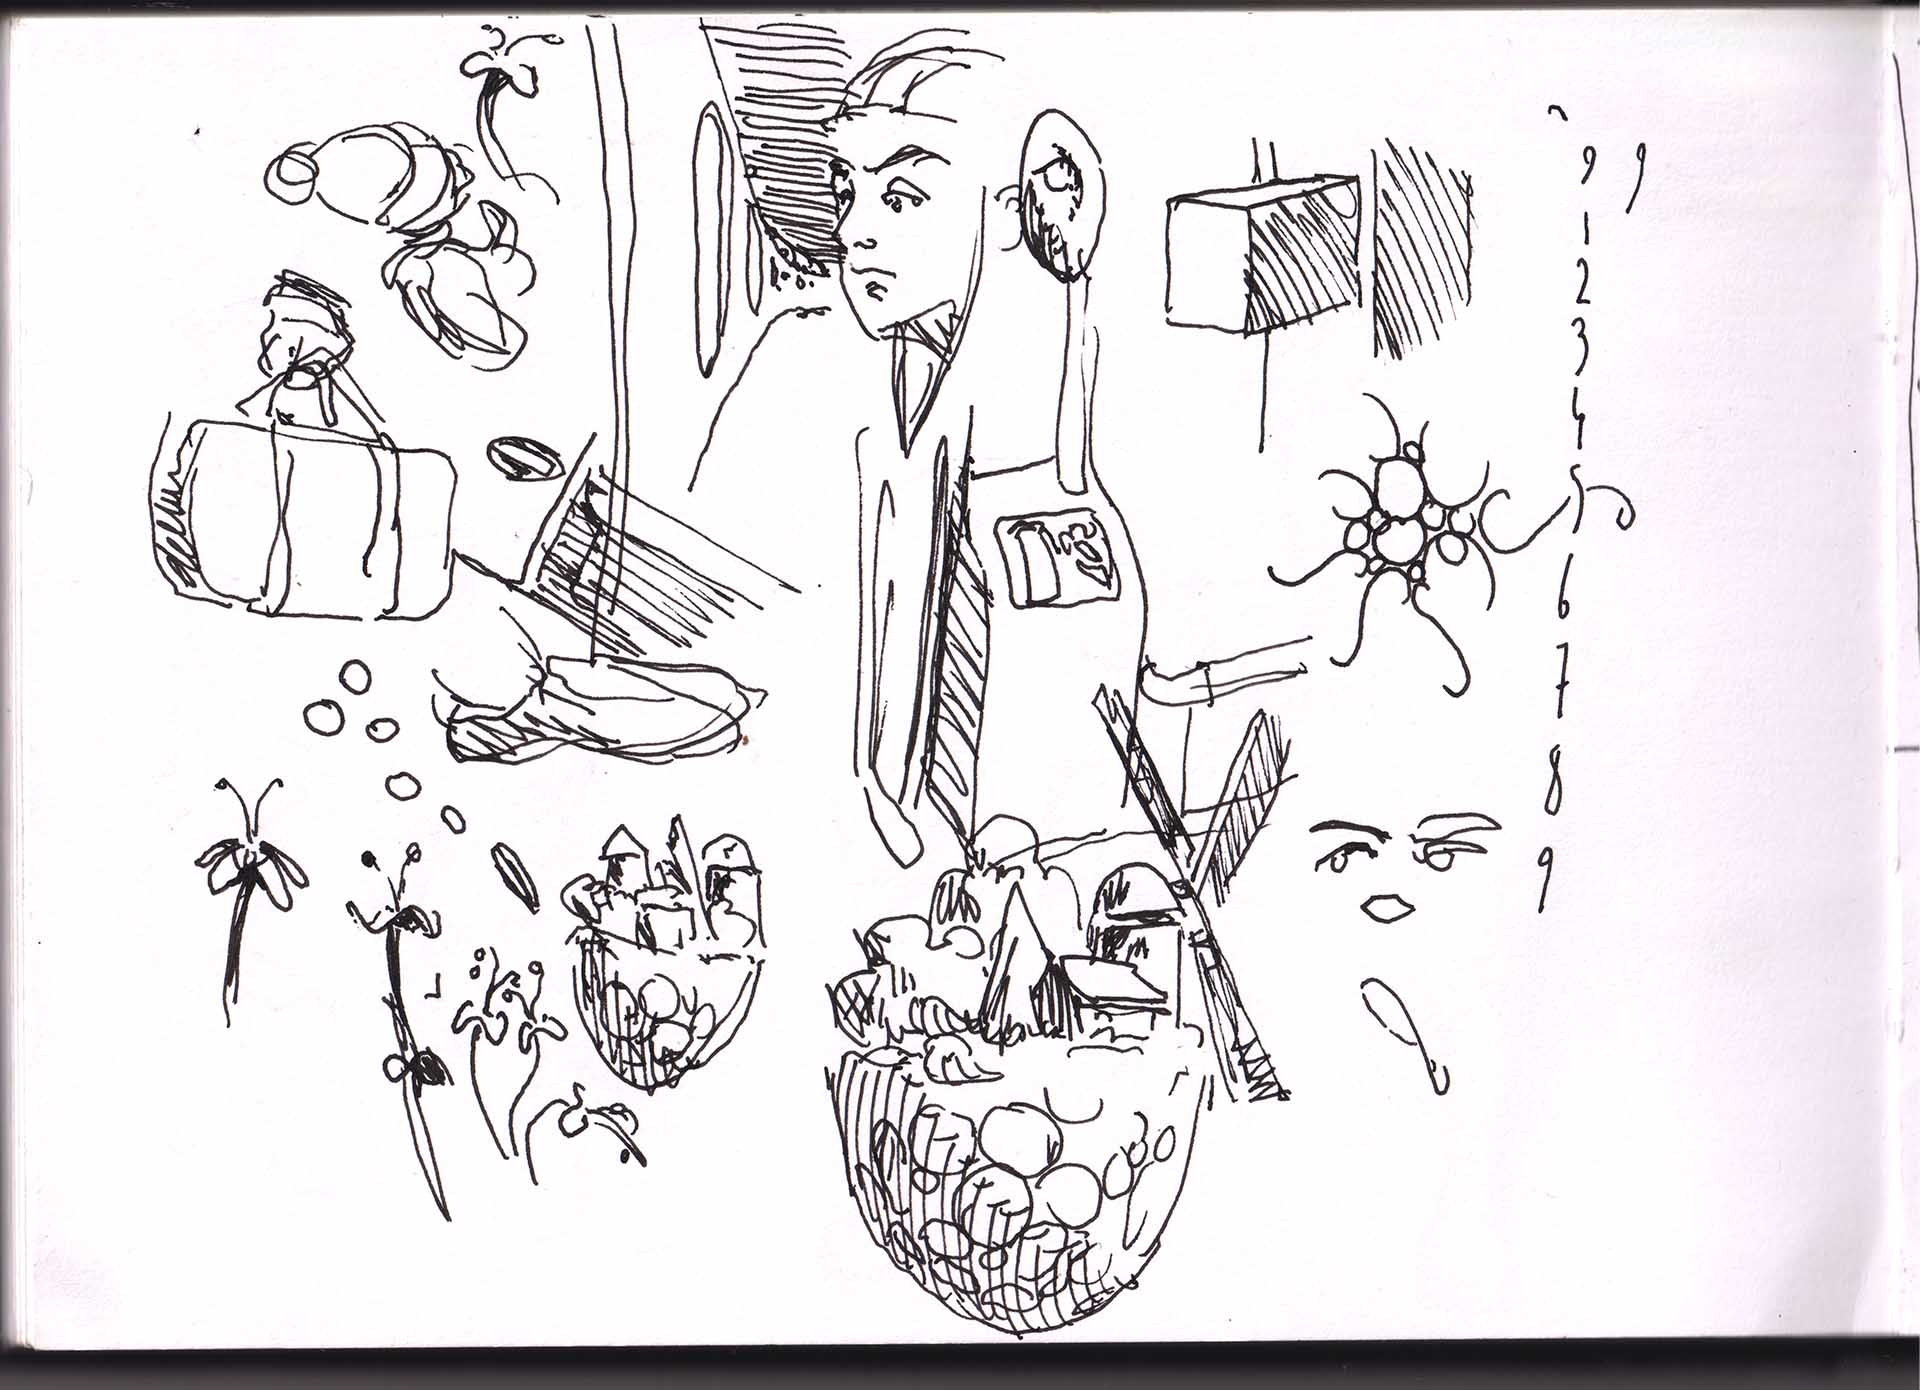 9 9
1
2
3
4
5
6
7
8
9